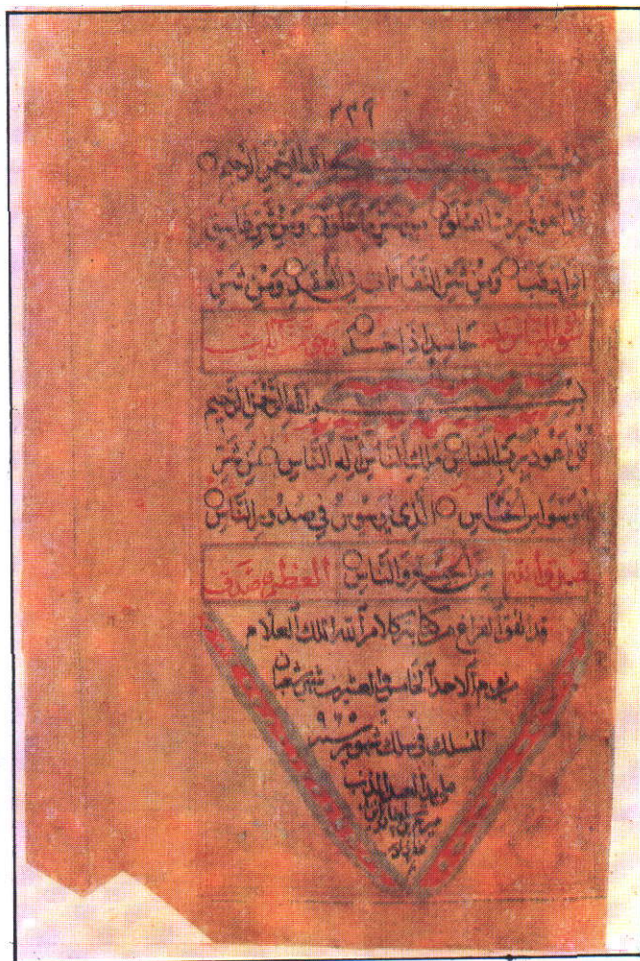 ٣٣٩
بسم الله الرحمن الرحيم
قل اعوذ برب الفلق من شر ما خلق ومن شر غاسق
اذا وقب ومن شر النفاثات في العقد ومن شر
حاسد اذا حسد
بسم الله الرحمن الرحيم
قل اعوذ برب الناس ملك الناس اله الناس من شر
الوسواس الخناس الذي يوسوس في صدور الناس
صدق الله من الجنة والناس العظيم وصدق
قد اتفق الفراغ من كتابة كلام الله الملك العلام
يوم الاحد الخامس والعشرين شهر شعبان
المنسلك في سلك شهور سنه ٩٦٥
العبد المذنب